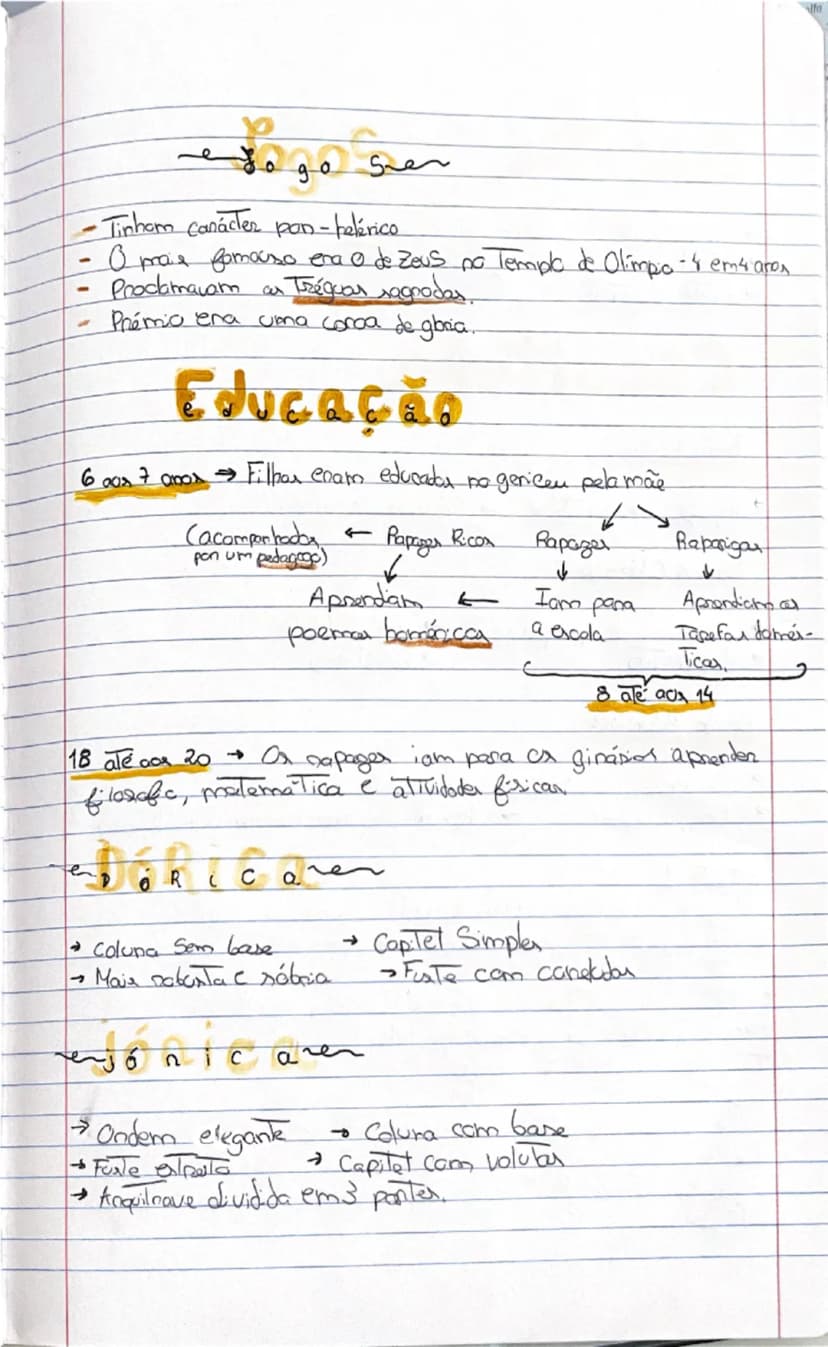 Jogos
- Tinham carácter pan-helénico
- O mais famoso era o de Zeus no Templo de Olímpia - 4 em 4 anos
- Proclamavam as Tréguas sagradas.
- Prémio era uma coroa de glória.
Educação
6 aos 7 anos ⇒ Filhos eram educados no gineceu pela mãe
(acompanhados ← Rapazes Ricos Rapazes Raparigas
por um pedagogo)
Aprendiam ← Iam para Aprendiam as
poemas homéricos a escola Tarefas domés-
ticas.
8 até aos 14
18 até aos 20 → Os rapazes iam para os ginásios aprender
filosofia, matemática e atividades físicas
Dórica
→ Coluna Sem base → Capitel Simples
→ Mais robusta e sóbria → Fuste com caneladas
jónica
→ Ordem elegante → Coluna com base
→ Fuste estreito → Capitel com volutas
→ Arquitrave dividida em 3 partes.